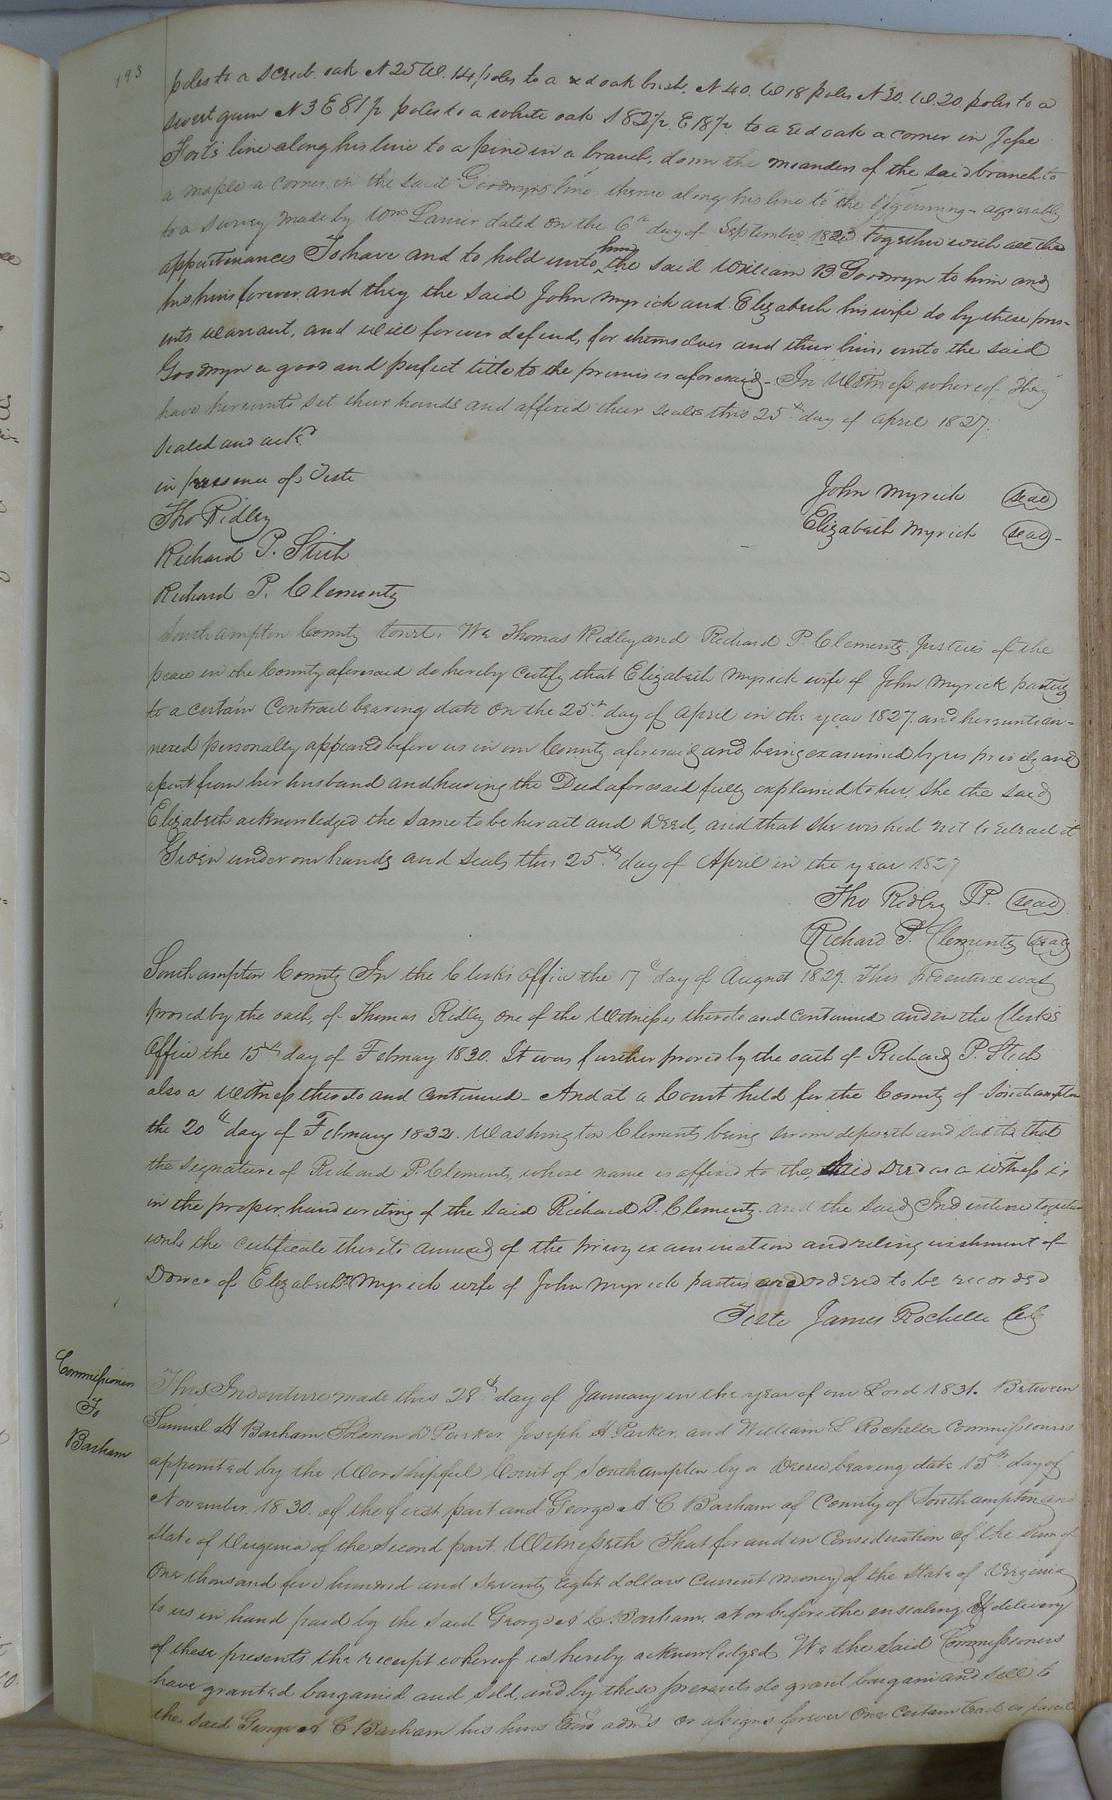 193
poles to a Scrub oak N 25 W. 14 poles to a red oak bush, N 40. W 18 poles N 30. W. 20 poles to a
sweet gum N 3 E 81 1/2 poles to a white oak S 82 1/2 E 18 1/2 to a red oak a corner in Jesse
Forts line along his line to a pine in a branch, down the meanders of the said branch to
a maple a corner in the said Goodwyns line thence along his line to the begenning - agreeably
to a survey made by Wm Lanier dated on the 6th day of September 1823 together with all the
appurtinances To have and to hold unto him the said William B Goodwyn to him and
his heirs forever, and they the said John Myrick and Elizabeth his wife do by these pres-
ents warrant, and will forever defend, for themselves and their heirs unto the said
Goodwyn a good and perfect title to the premises aforesaid - In Witness whereof They
have hereunto set their hands and affixed their seals this 25th day of April 1827.
Sealed and ackd
in presence of Teste
John Myrick (seal)
Tho Ridley
Elizabeth Myrick (seal) -
Richard P. Stith
Richard P. Clements
Southampton County Towit. We Thomas Ridley and Richard P. Clements Justices of the
peace in the County aforesaid do hereby certify that Elizabeth Myrick wife of John Myrick parties
to a certain Contract bearing date on the 25th day of April in the year 1827. and hereunto an-
nexed personally appeared before us in our County aforesaid and being examined by us privily and
apart from her husband and having the Deed aforesaid fully explained to her, She the said
Elizabeth acknowledged the same to be her act and Deed, and that she wished not to retract it
Given under our hands and seals this 25th day of April in the year 1827
Tho Ridley JP. (seal)
Richard P. Clements (seal)
Southampton County In the Clerks Office the 17th day of August 1829. This Indenture was
proved by the oath, of Thomas Ridley one of the Witnesses thereto and continued and in the Clerks
Office the 15th day of February 1830. It was further proved by the oath of Richard P. Stith
also a Witness thereto and continued - And at a Court held for the County of Southampton
the 20th day of February 1832. Washington Clements being sworn deposeth and saith that
the signature of Richard P. Clements, whose name is affixed to the said Deed as a witness is
in the proper hand writing of the said Richard P. Clements. and the said Indenture together
with the certificate thereto annexed of the privy examination and relinquishment of
Dower of Elizabeth Myrick wife of John Myrick parties and ordered to be recorded
Teste James Rochelle Clk
Commissioners
To
Barham
This Indenture made this 28th day of January in the year of our Lord 1831. Between
Samuel H Barham Solomon D Parker, Joseph H Parker, and William L Rochelle Commissioners
appointed by the Worshipful Court of Southampton by a decree bearing date 15th day of
November 1830. of the first part and George A C Barham of County of Southampton and
State of Virginia of the second part. Witnesseth That for and in Consideration of the sum of
One thousand five hundred and seventy eight dollars Current money of the State of Virginia
to us in hand paid by the said George A C Barham, at or before the ensealing & delivery
of these presents the receipt whereof is hereby acknowledged We the said Commissioners
have granted bargained and sold, and by these presents do grant bargain and sell to
the said George A C Barham his heirs Exors adms or assigns forever One certain tract or parcel